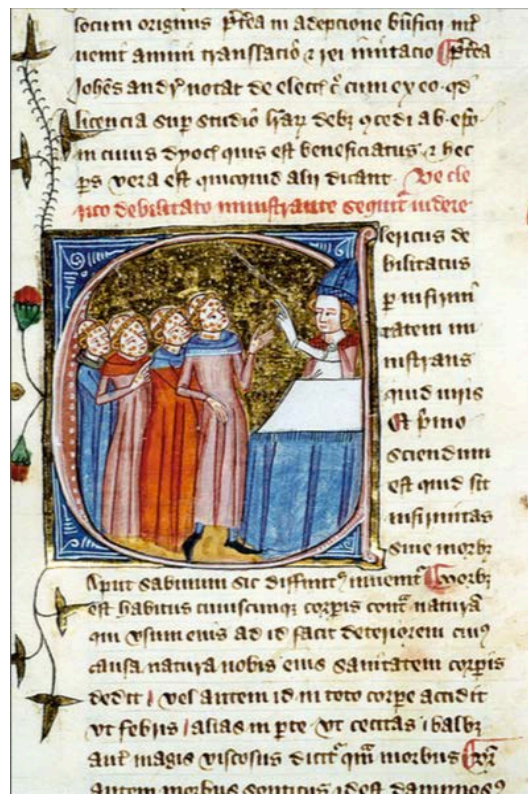 locum in adepcione
animi translacio ⁊ rei
Johēs andr̄ notat de cum ex eo · qd
licencia sup studio debꝫ ab ep̄o
in cuius dyoc̄ quis est beneficiatus · ⁊ hec
ps vera est quicquid alii dicant · De cle
rico debilitato ministrante sequit̄ videre
lericus de
bilitatus
p infirmi
tatem mi
nistrans
quid iuris
Et p̄mo
sciendum
est quid sit
infirmitas
siue morbꝫ
Aput sabinum sic diffinit᷒ Morbꝫ
est habitus cuiuscunqꝫ corꝑis cont̄ naturā
qui vsum eius ad id facit deteriorem cui᷒
causa natura nobis eius sanitatem corpis
dedit vel autem id in toto corpe accidit
vt febris alias in pte vt cecitas
aut̄ magis viscosus dicit̄ qm̄ morbus
autem morbus sonticus idest